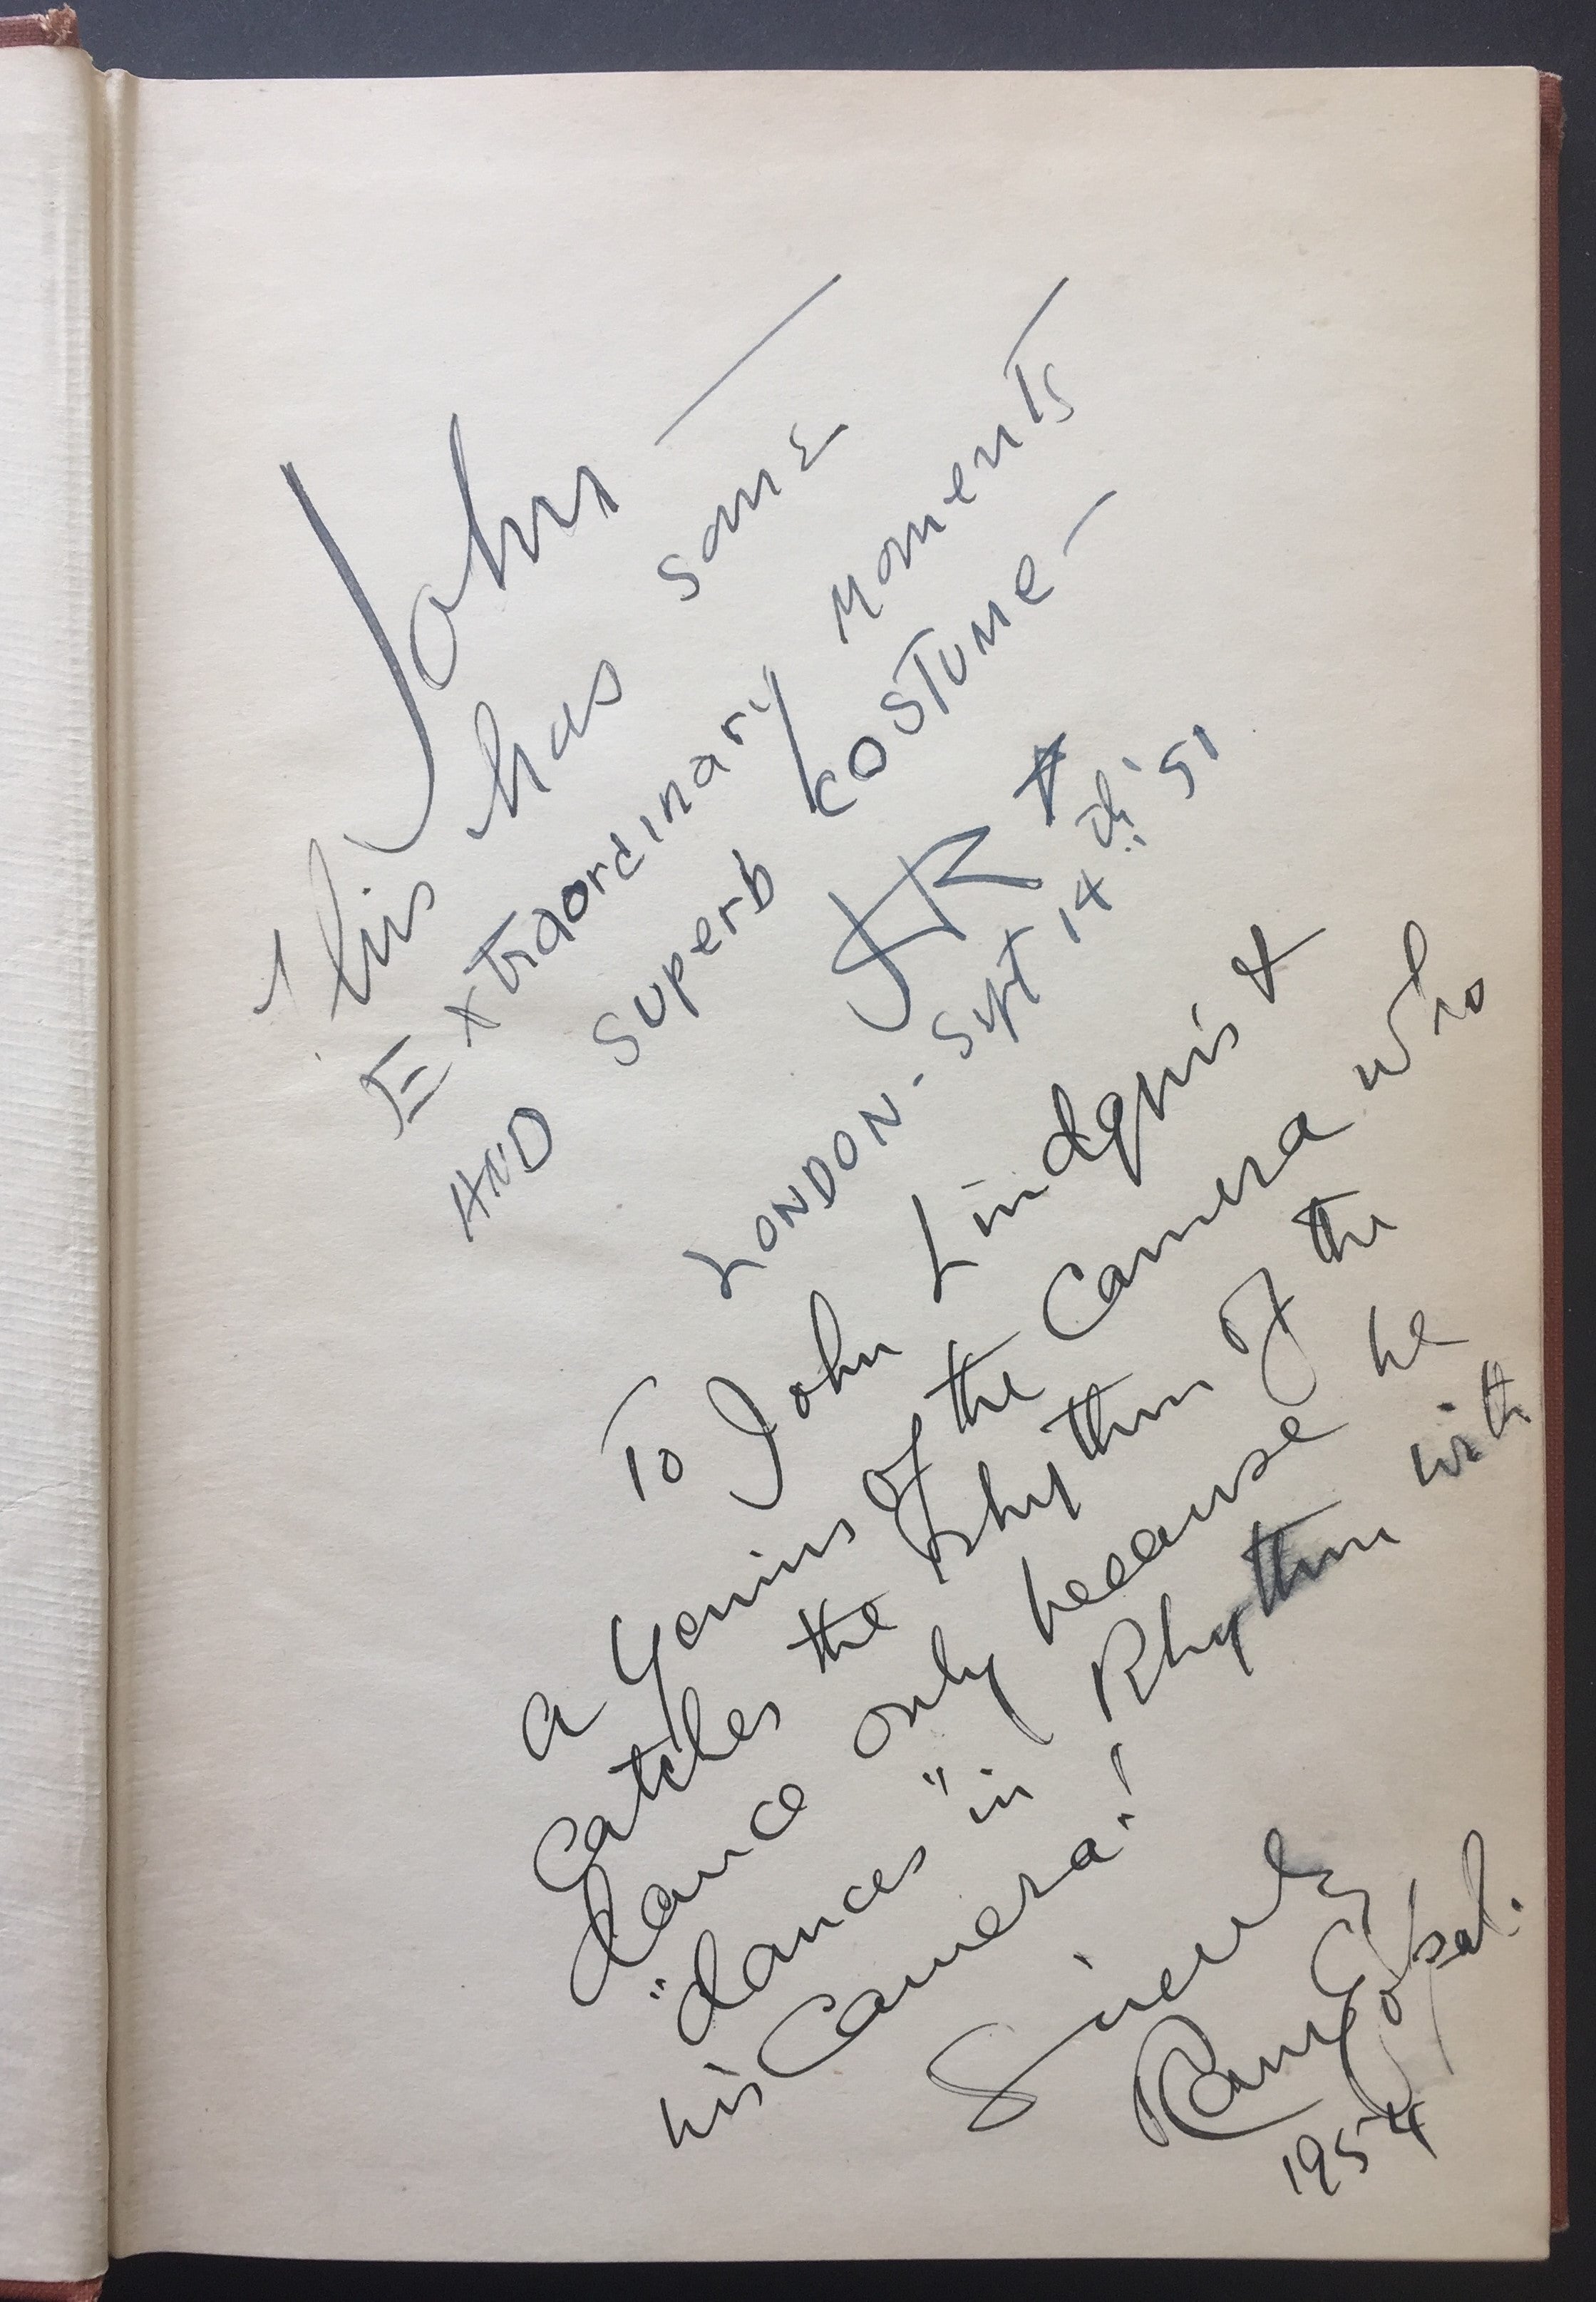 John —
This has some
Extraordinary moments
AND superb COSTUME —
LONDON - Sept 14th '51
To John Lindquist
a genius of the Camera who
Catches the Rhythm of the
dance only because he
"dances" in Rhythm with
his Camera!
Sincerely
Ram Gopal.
1954